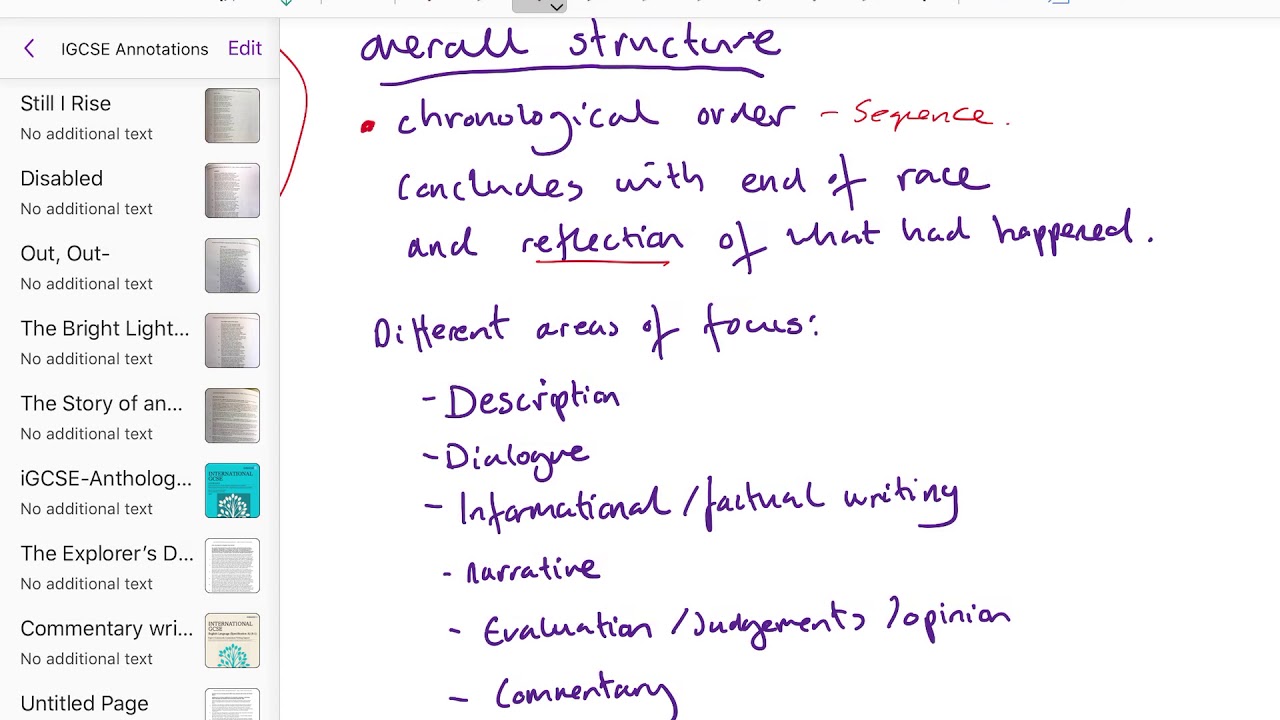 IGCSE Annotations
Edit
Still I Rise
No additional text
Disabled
No additional text
Out, Out-
No additional text
The Bright Light...
No additional text
The Story of an...
No additional text
iGCSE-Antholog...
No additional text
The Explorer's D...
No additional text
Commentary wri...
No additional text
Untitled Page
INTERNATIONAL
GCSE
INTERNATIONAL
GCSE
overall structure
• chronological order - Sequence.
Concludes with end of race
and reflection of what had happened.
Different areas of focus:
- Description
- Dialogue
- Informational / factual writing
- narrative
- Evaluation / Judgements / opinion
- Commentary